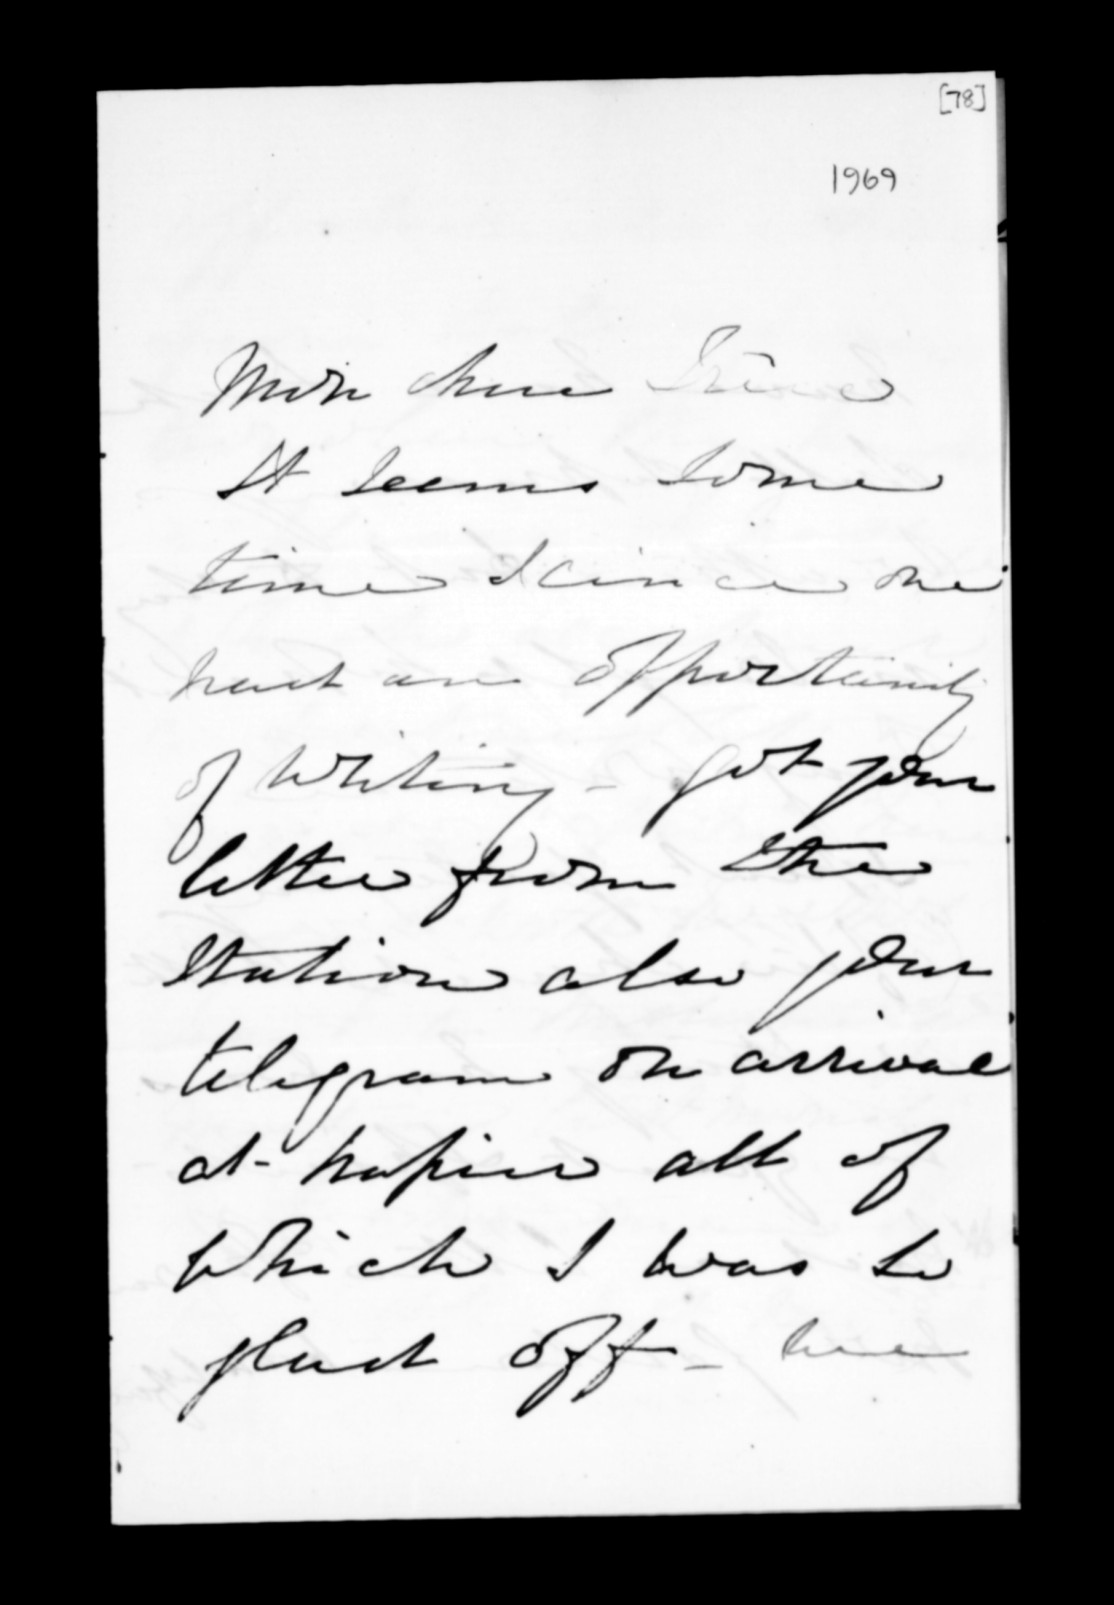 [78]
1969
Mon chere
It seems some
time scince one
had an opportunity
of writing - got your
letter from the
Station also your
telegram on arrival
at Napier all of
which I was so
glad off - we